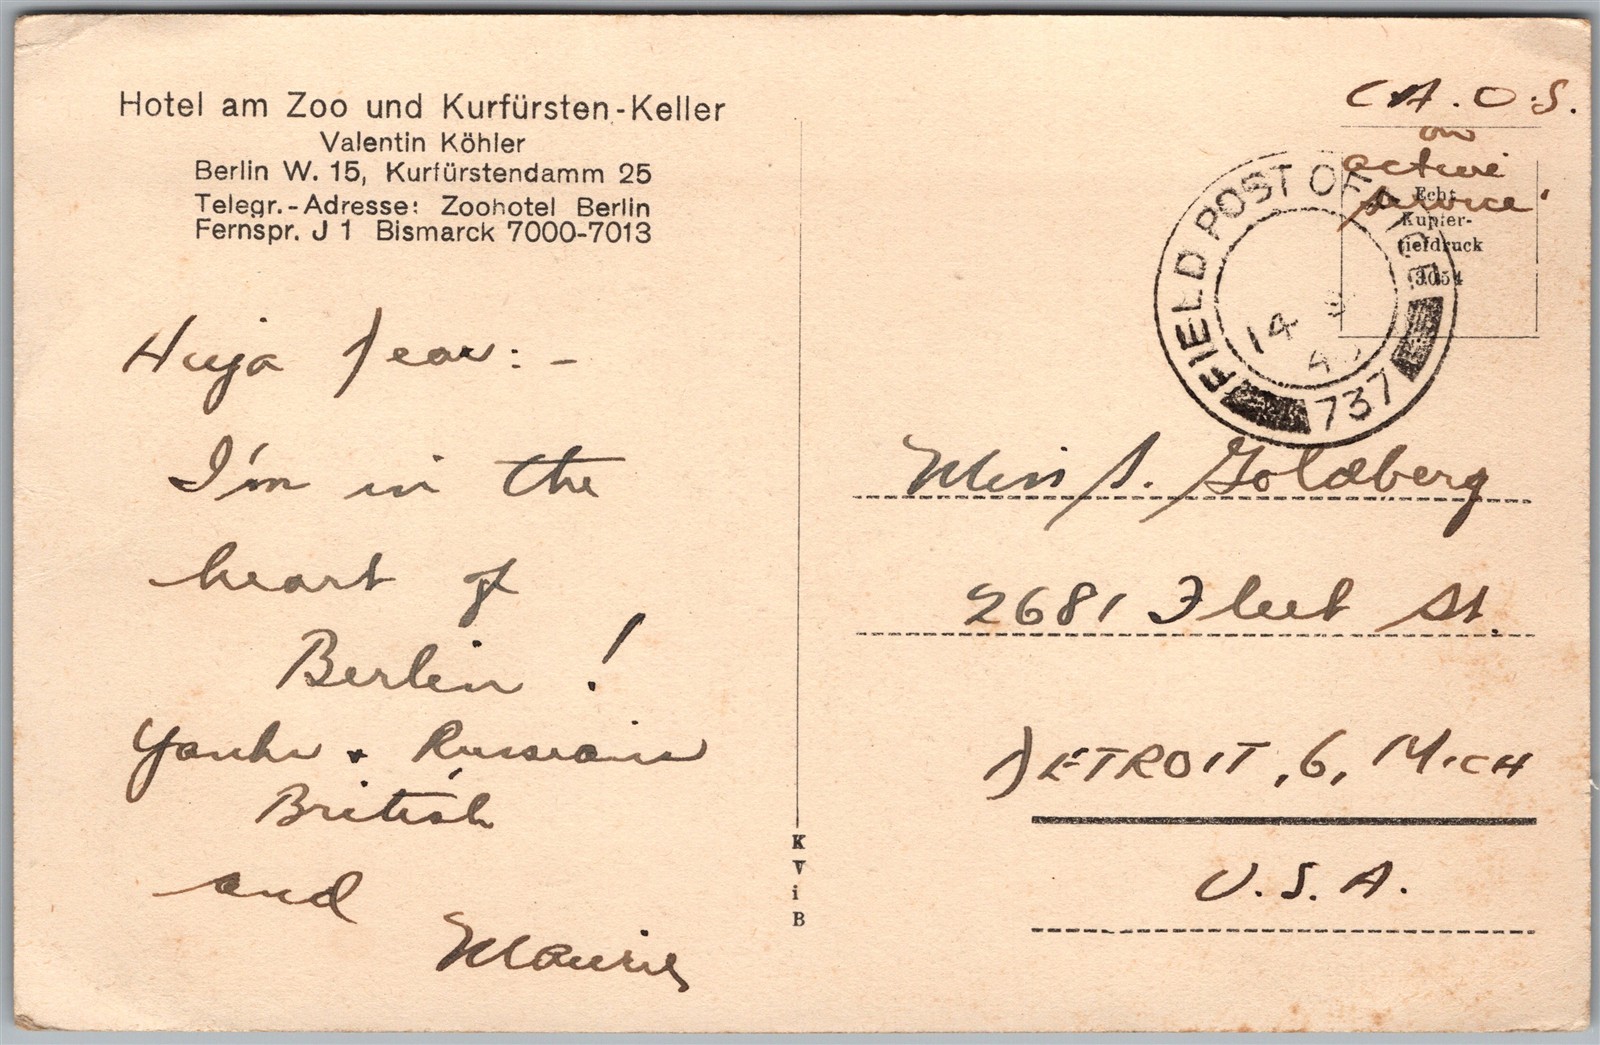 Hotel am Zoo und Kurfürsten-Keller
Valentin Köhler
Berlin W. 15, Kurfürstendamm 25
Telegr.-Adresse: Zoohotel Berlin
Fernspr. J 1 Bismarck 7000-7013
C A. O. S.
on
active
service
Echt
Kupfer-
tiefdruck
3054
FIELD POST OFFICE
14
737
Hiya Dear:-
I'm in the
heart of
Berlin!
Yanks + Russians
British
and
Maurie
Miss S. Goldberg
2681 Fleet St.
DETROIT, 6, MICH
U.S.A.
K
V
i
B